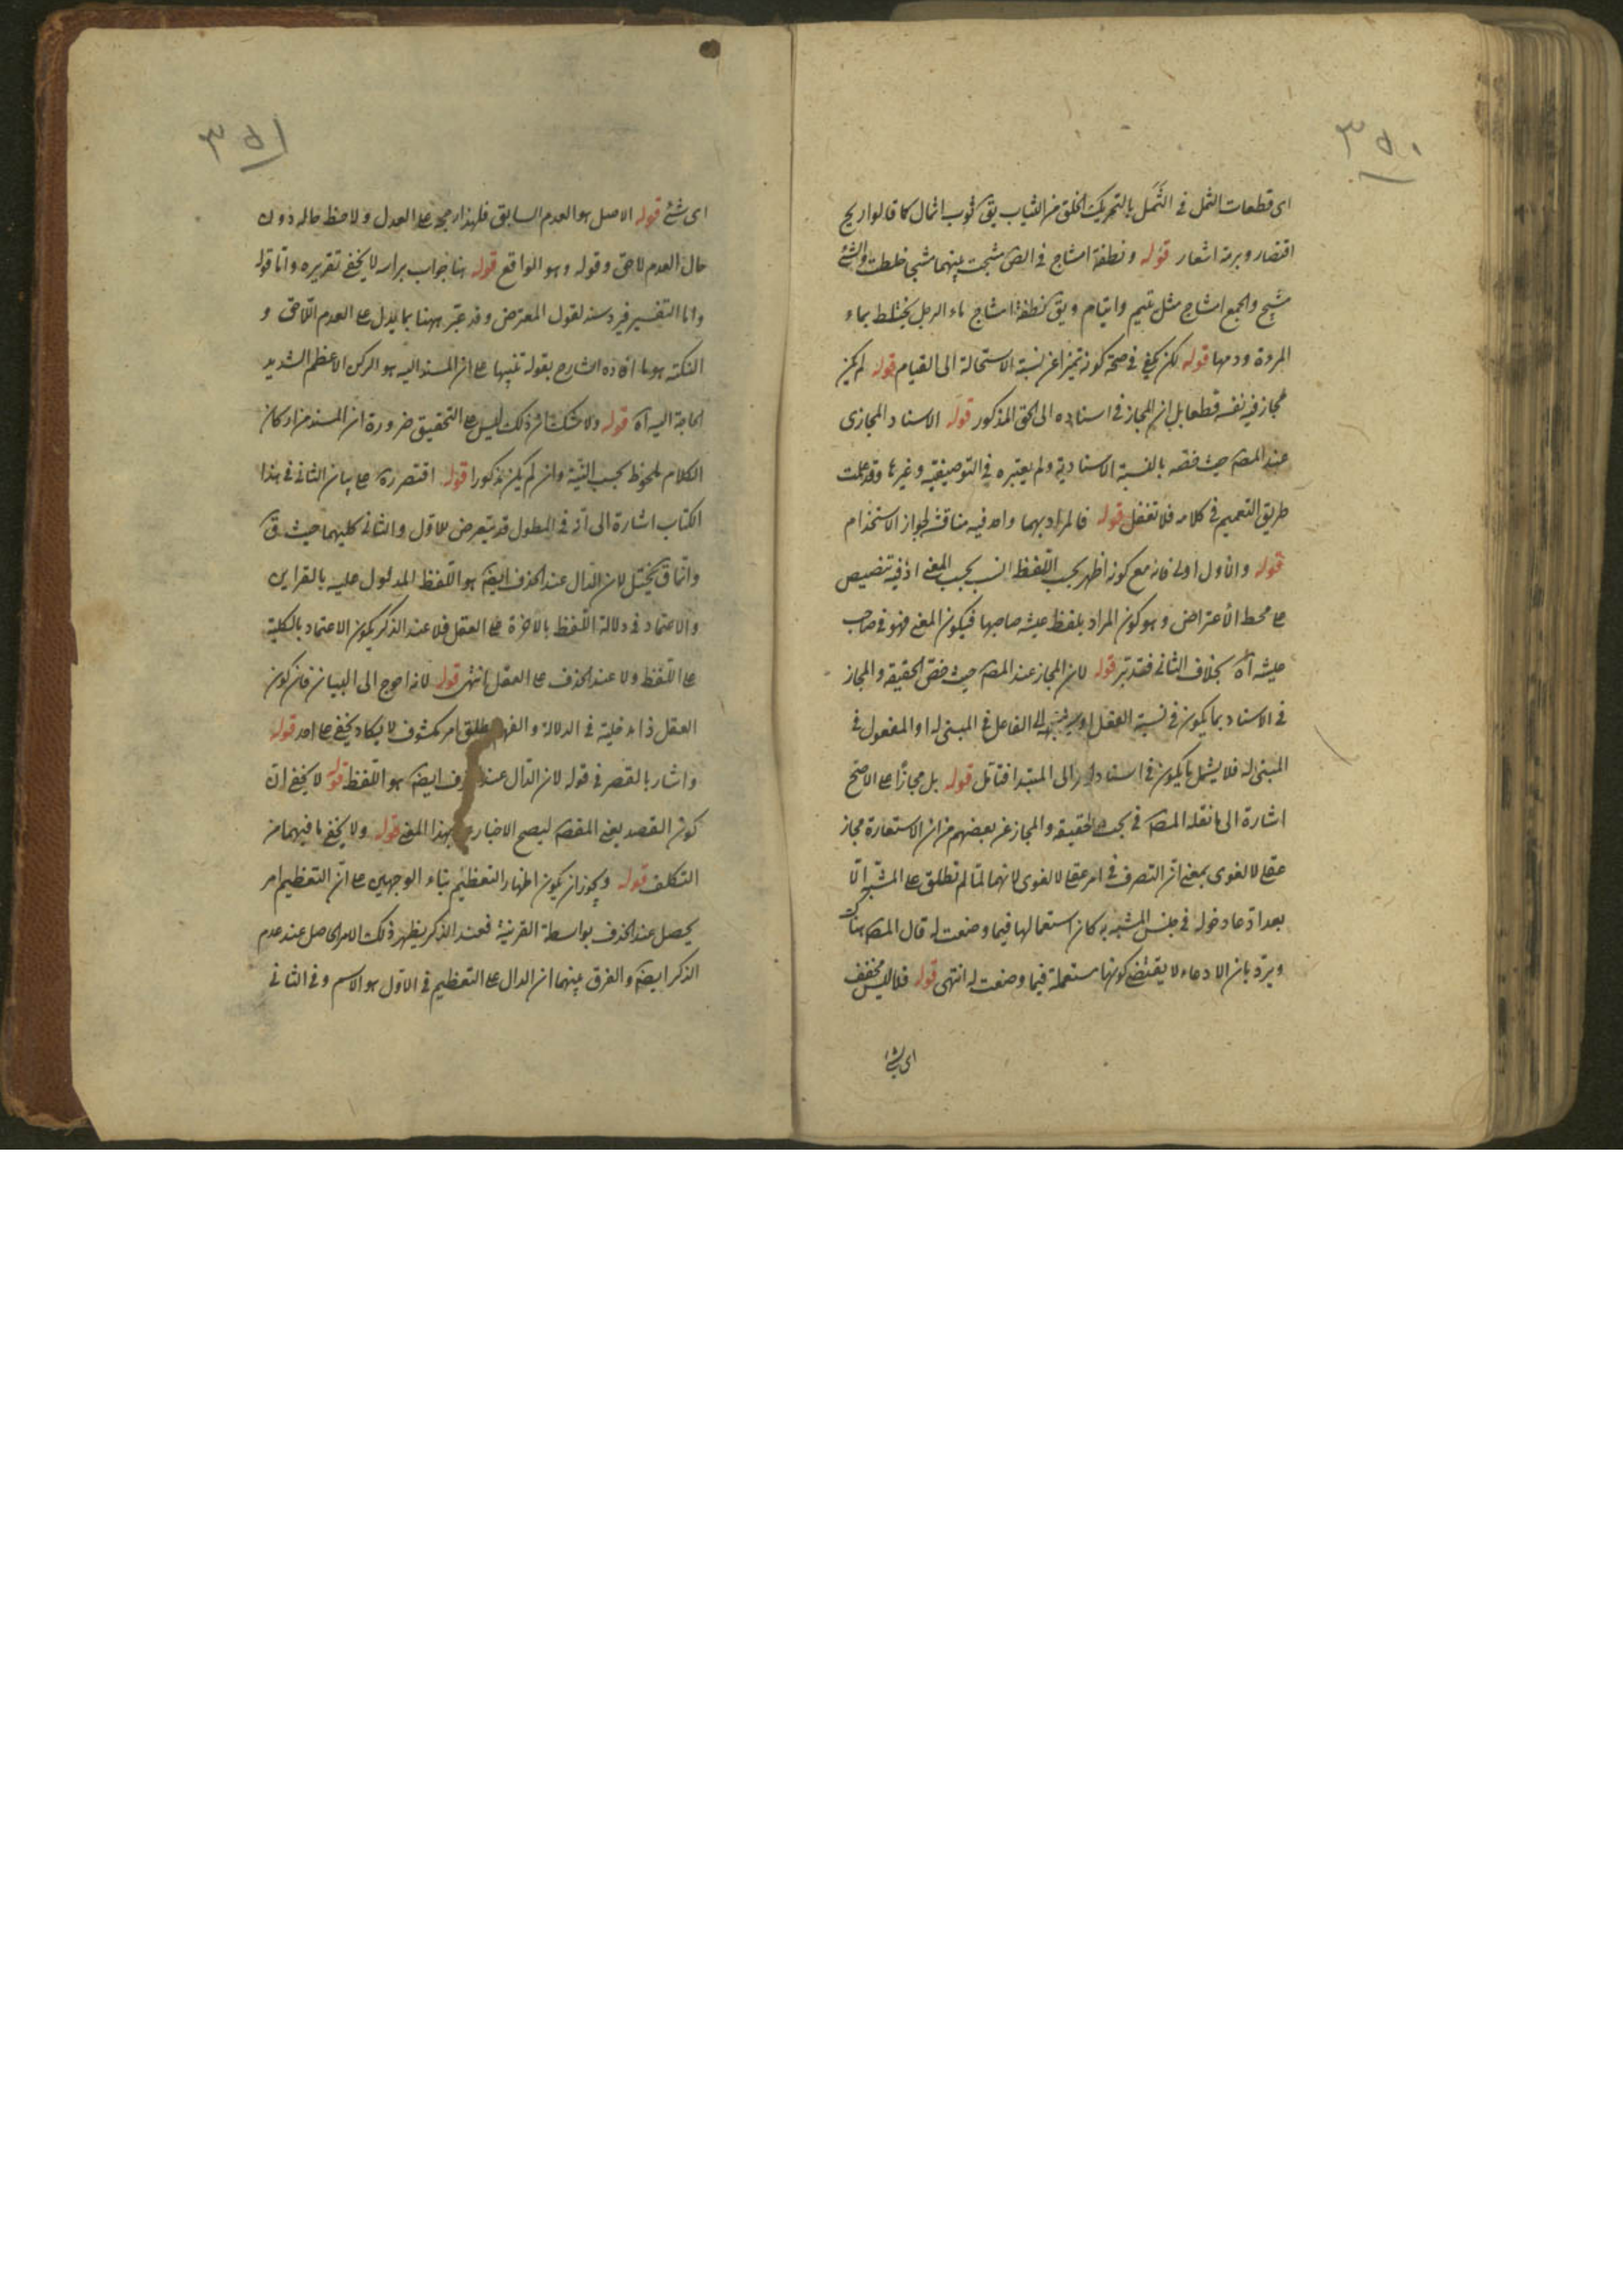 ٣٥٠
اى قطعات الثمل فى الثَّمَل بالتحريك الخلق من الثياب يق ثوب اثمال كما قالوا ريح
اقتصار وبرمة اعشار قوله ونطفة امشاج فى الص مشجت بينهما مشجا خلطت والشئ
مشيج والجمع امشاج مثل يتيم وايتام ويق نطفة امشاج ماء الرجل يختلط بماء
المرءة ودمها قوله لكن يكفى فى صحة كونه تميزا عن نسبة الاستحالة الى القيام قوله لم يكن
مجاز فيه نفسه قطعا بل ان المجاز فى اسناده الى الحق المذكور قوله الاسناد المجازى
عند المصه حيث خصه بالنسبة الاسنادية ولم يعتبره فى التوصيفية وغيرها وقد علمت
طريق التعميم فى كلامه فلا تغفل قوله فالمراد بهما واحد فيه مناقشة لجواز الاستخدام
قوله والاول اولى فانه مع كونه اظهر بحسب اللفظ انسب بحسب المعنى اذ فيه تنصيص
على محط الاعتراض وهو كون المراد بلفظ عيشة صاحبها فيكون المعنى فهو فى صاحب
عيشة آه بخلاف الثانى فتدبر قوله لان المجاز عند المصه حيث خص الحقيقة والمجاز
فى الاسناد بما يكون فى نسبة الفعل الى الفاعل فى المبنى له او المفعول فى
المبنى له فلا يشمل ما يكون فى اسناد الى المبتدا فتامل قوله بل مجازًا على الاصح
اشارة الى ما نقله المصه فى بحث الحقيقة والمجاز عن بعضهم من ان الاستعارة مجاز
عقلى لا لغوى بمعنى ان التصرف فى امر عقلى لا لغوى لانها لما لم تطلق على المشبه الّا
بعد ادّعاء دخوله فى جنس المشبه به كان استعمالها فيما وضعت له قال المصه هناك
ويردّ بان الادعاء لا يقتضى كونها مستعملة فيما وضعت له انتهى قوله فلا ليس مخفف
اى شئ
٣٥١
اى شئ قوله الاصل هو العدم السابق فلهذا رجحه على العدل ولاحظ حاله دون
حال العدم لاحق وقوله وهو الواقع قوله هنا جواب براسه لا يخفى تقريره واما قوله
واما التفسير فيرد سند لقول المعترض وقد عبّر ههنا بما يدل على العدم اللاحق و
النكتة هو ما افاده الشارح بقوله تنبيها على ان المسند اليه هو الركن الاعظم الشديد
الحاجة اليه آه قوله ولا شك ان ذلك ليس على التحقيق ضرورة ان المسند من اركان
الكلام ملحوظ بحسب النيّة وان لم يكن مذكورا قوله اقتصر ره على بيان الثانى فى هذا
الكتاب اشارة الى انه فى المطول قد يتعرض للاول والثانى كليهما حيث ق
وانما ق تخييل لان الدّال عند الحذف ايضه هو اللّفظ المدلول عليه بالقراين
والاعتماد فى دلالة اللفظ بالاخرة على العقل فلا عند الذكر يكون الاعتماد بالكلية
على اللّفظ ولا عند الحذف على العقل انتهى قوله لانه احوج الى البيان فان كون
العقل ذا مدخلية فى الدلالة والفهم مطلق امر مكشوف لا يكاد يخفى على احد قوله
واشار بالقصر فى قوله لان الدّال عند الحذف ايضه هو اللّفظ قوله لا يخفى ان
كون القصد بمعنى المقصه ليصح الاخبار بهذا المعنى قوله ولا يخفى ما فيهما من
التكلف قوله ويجوز ان يكون اظهار التعظيم بناء الوجهين على انّ التعظيم امر
يحصل عند الحذف بواسطة القرينة فعند الذكر يظهر ذلك الامر الحاصل عند عدم
الذكر ايضه والفرق بينهما ان الدال على التعظيم فى الاول هو الاسم وفى الثانى